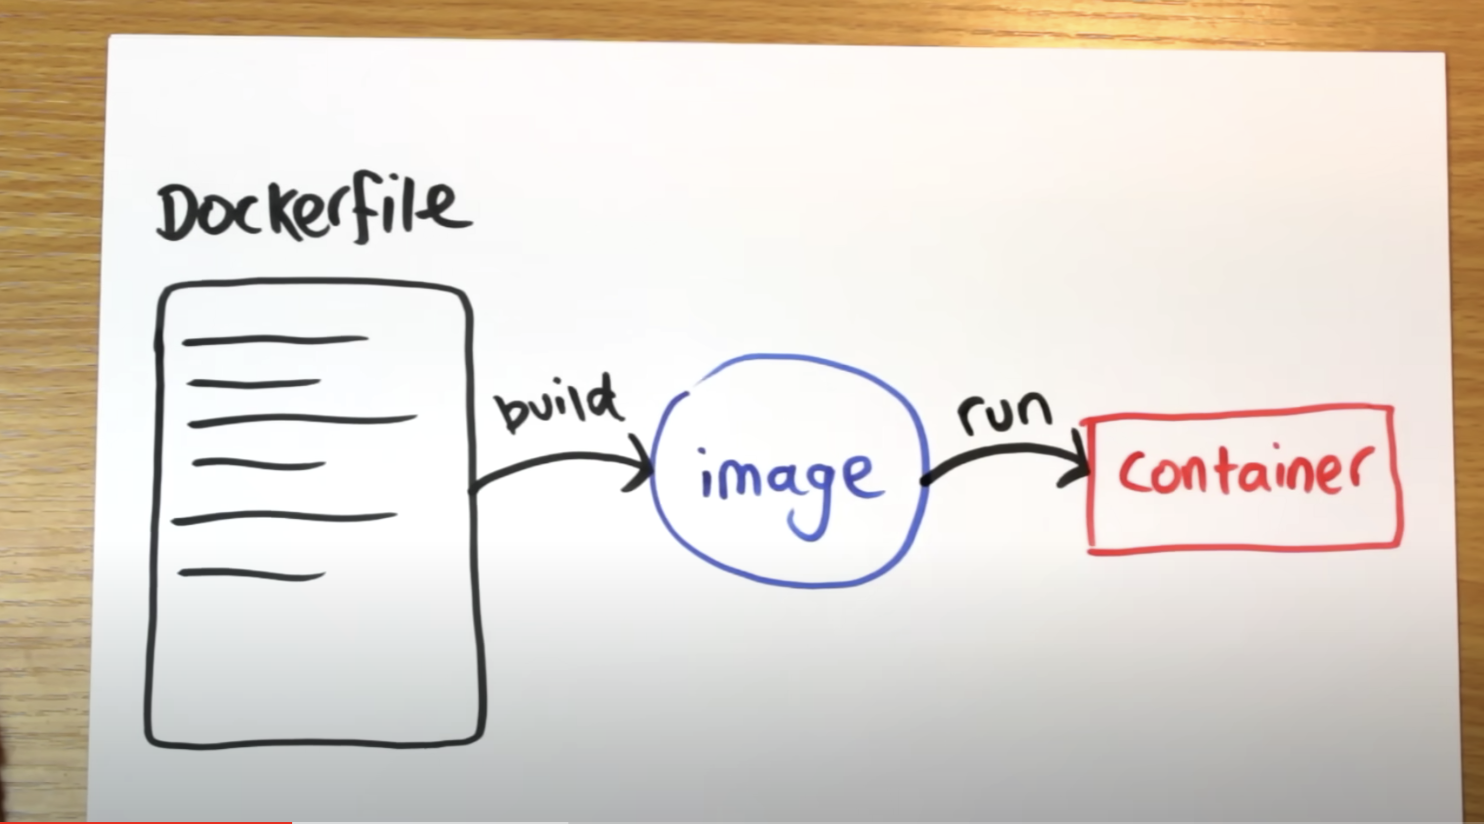 Dockerfile
build
image
run
container